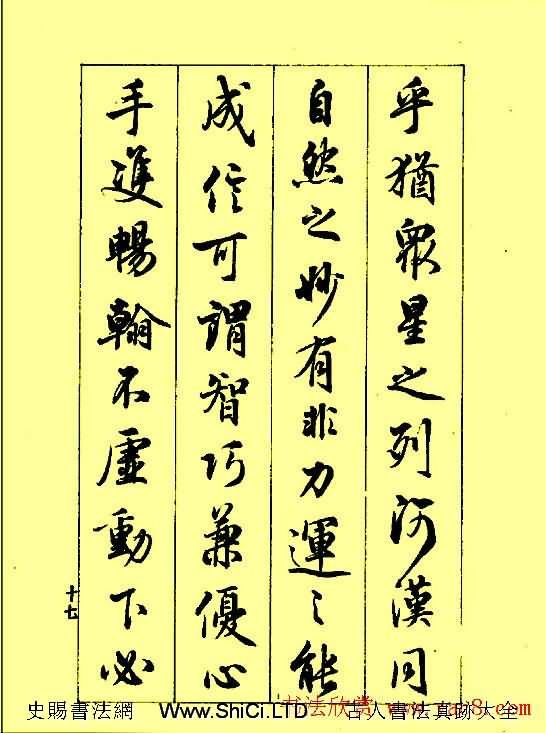 乎猶眾星之列河漢同
自然之妙有非力運之能
成信可謂智巧兼優心
手雙暢翰不虛動下必
十七
史賜書法網 www.ShiCi.LTD 古人書法真跡大全
书法欣赏